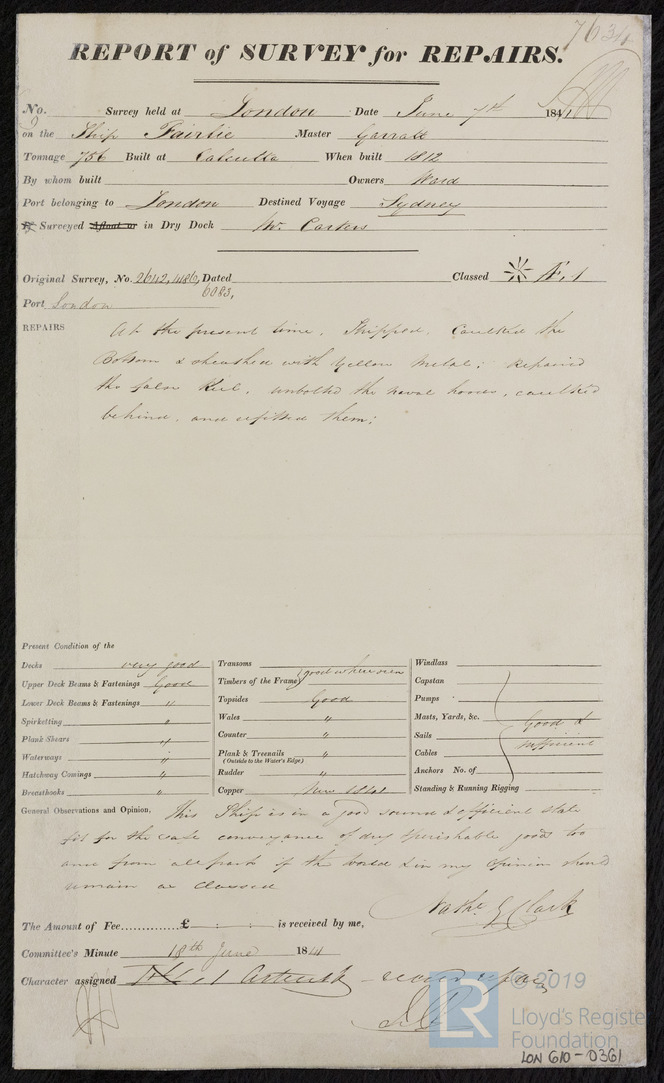 7634
REPORT of SURVEY for REPAIRS.
No. Survey held at London Date June 7th 1841
on the Ship Fairlie Master Garratt
Tonnage 756 Built at Calcutta When built 1812
By whom built Owners Ward
Port belonging to London Destined Voyage Sydney
Surveyed Afloat or in Dry Dock Mr. Carters
Original Survey, No. 2642, 4486, Dated Classed F. 1
6083,
Port London
REPAIRS At the present time, Stripped, Caulked the
Bottom & sheathed with Yellow Metal; Repaired
the false Keel, unbolted the naval hoods, caulked
behind, and refitted them;
Present Condition of the
Decks very good
Upper Deck Beams & Fastenings Good
Lower Deck Beams & Fastenings "
Spirketting "
Plank Shears "
Waterways "
Hatchway Comings "
Breasthooks "
Transoms
Timbers of the Frame good where seen
Topsides Good
Wales "
Counter "
Plank & Treenails "
(Outside to the Water's Edge)
Rudder "
Copper New 1841
Windlass
Capstan
Pumps
Masts, Yards, &c. Good &
Sails sufficient
Cables
Anchors No. of
Standing & Running Rigging
General Observations and Opinion, This Ship is in a good sound & efficient state
fit for the safe conveyance of dry & perishable goods to &
from all parts of the World & in my opinion should
remain as Classed
Nathl G Clark
The Amount of Fee..............£ : : is received by me,
Committee's Minute 18th June 1841
Character assigned
© 2019
LR
Lloyd's Register
Foundation
LON 610-0361